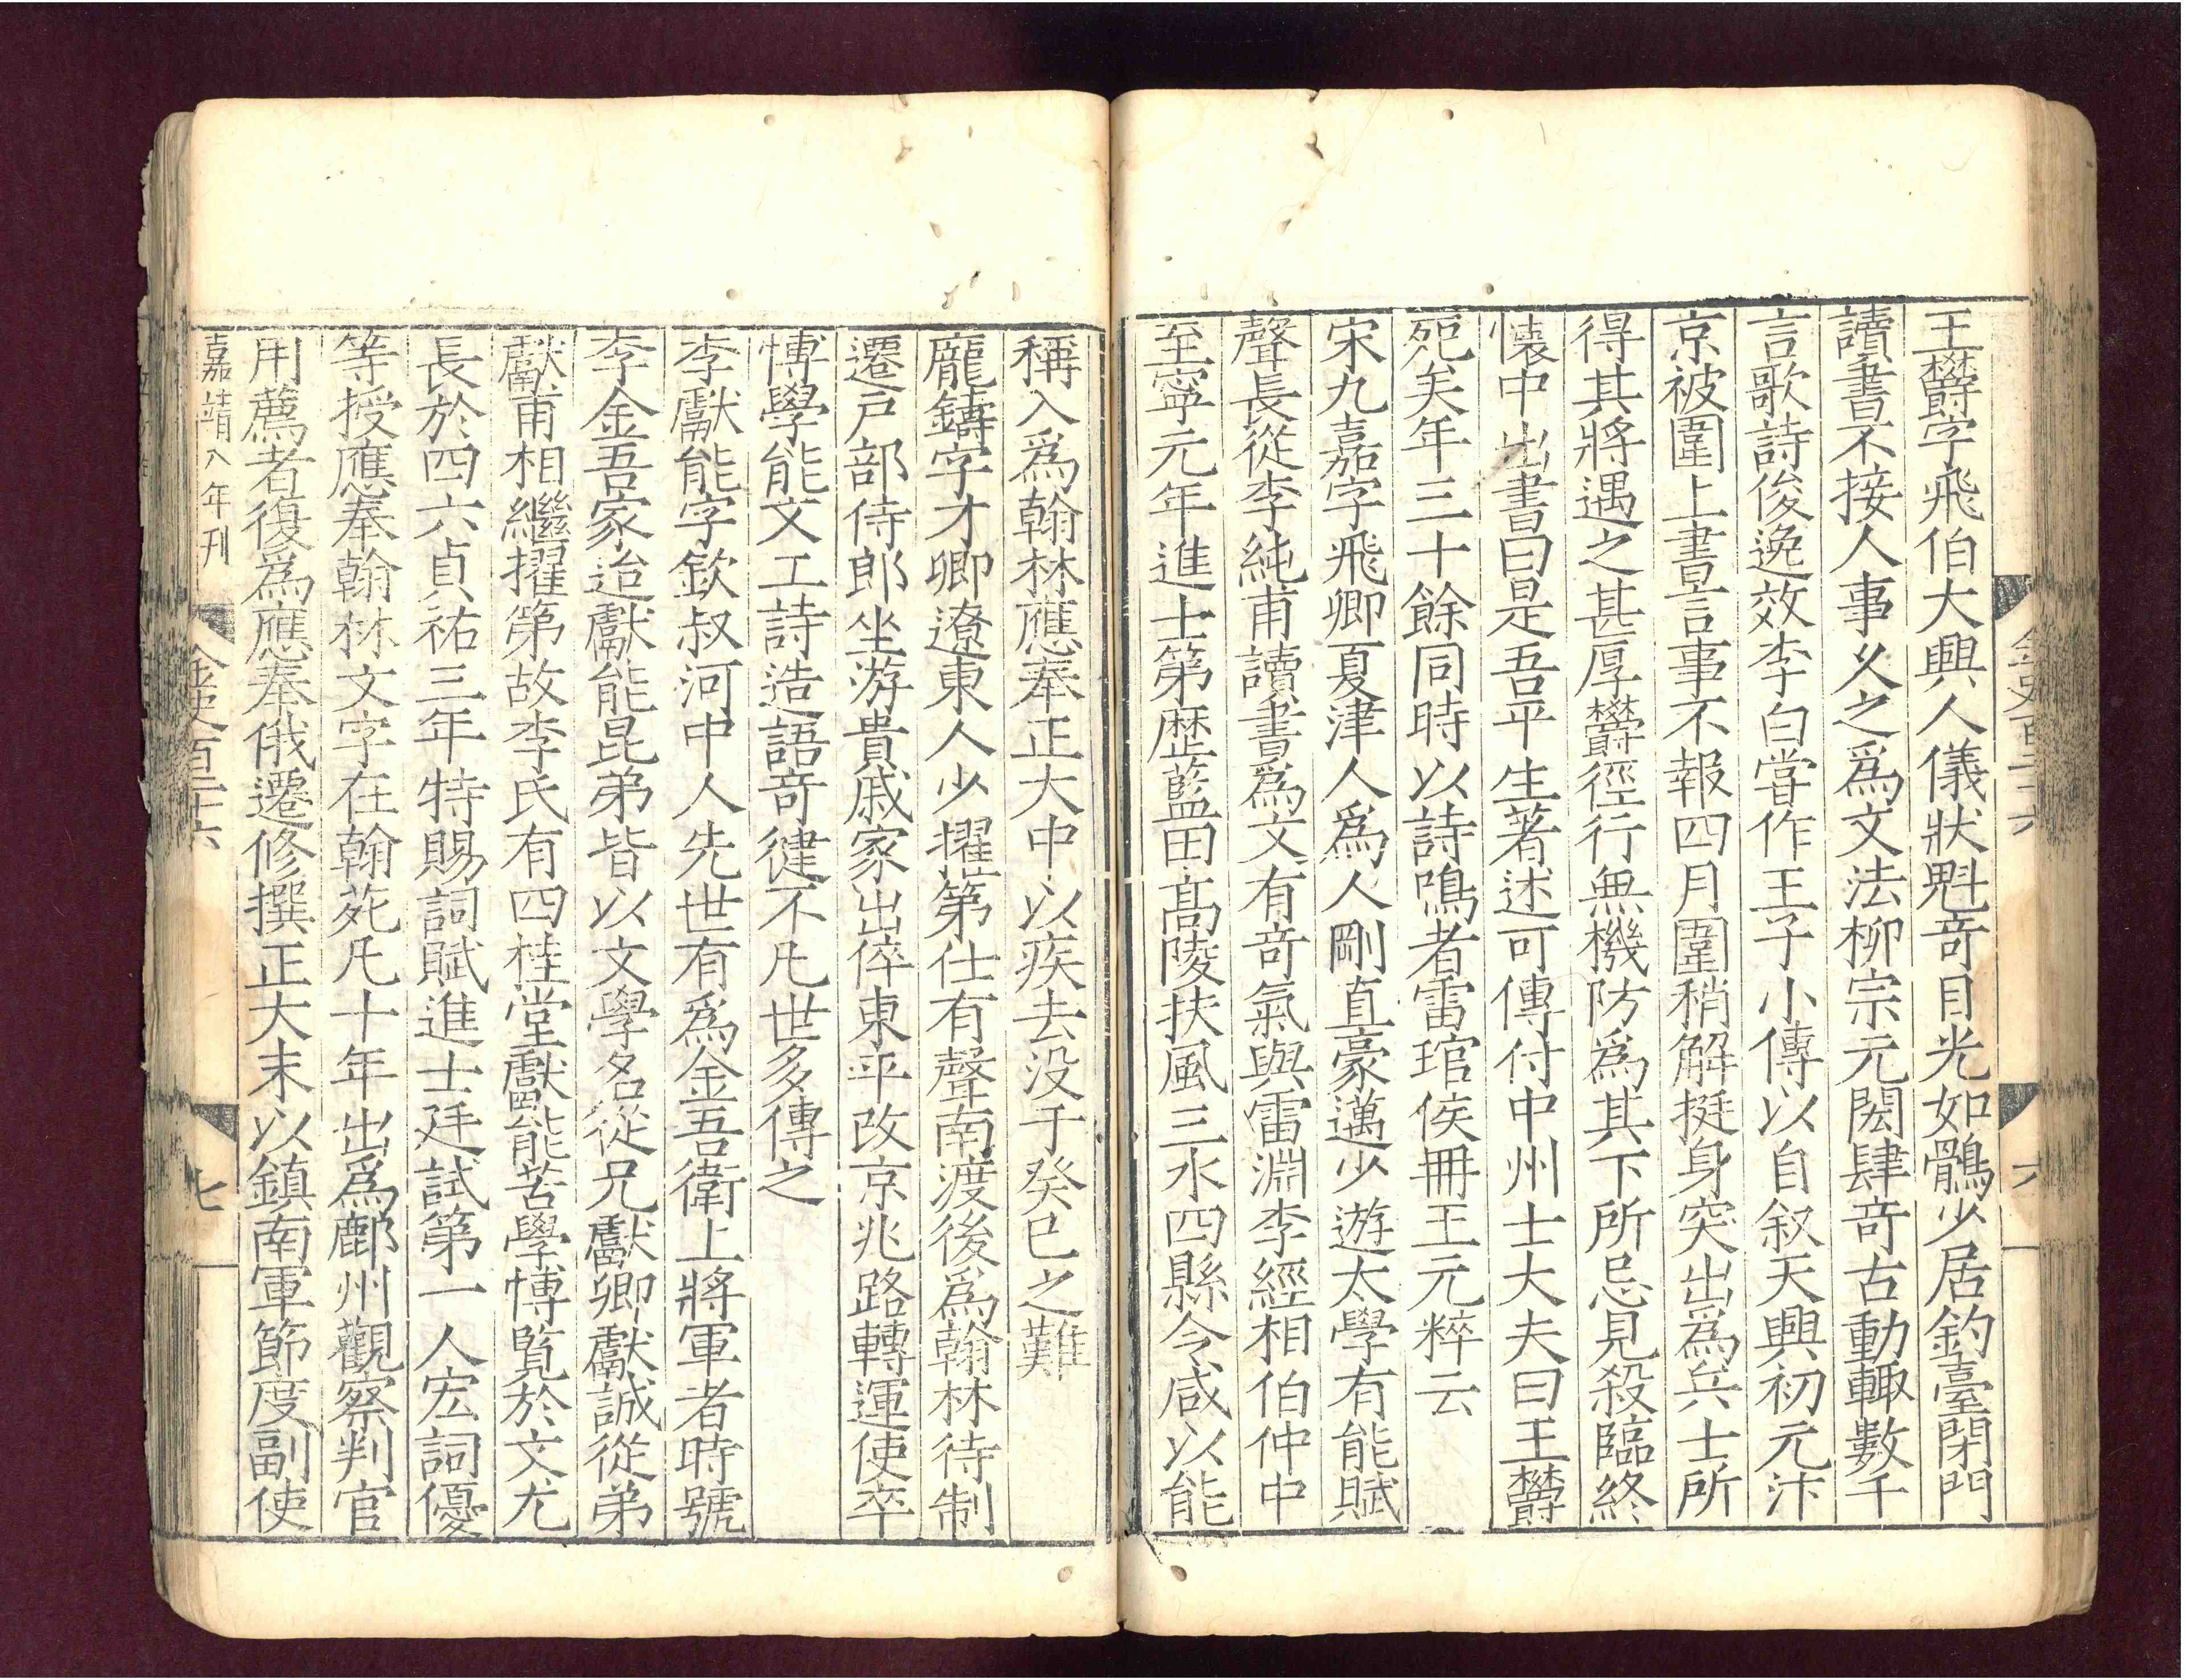 王欝字飛伯大興人儀狀魁竒目光如鶻少居釣臺閉門
讀書不接人事乆之爲文法柳宗元閎肆竒古動輙數千
言歌詩俊逸效李白嘗作王子小傳以自叙天興初元汴
京被圍上書言事不報四月圍稍解挺身突出爲兵士所
得其將遇之甚厚欝徑行無機防爲其下所忌見殺臨終
懐中出書曰是吾平生著述可傳付中州士大夫曰王欝
死矣年三十餘同時以詩鳴者雷琯侯冊王元粹云
宋九嘉字飛卿夏津人爲人剛直豪邁少遊太學有能賦
聲長從李純甫讀書爲文有竒氣與雷淵李經相伯仲中
至寧元年進士第歷藍田髙陵扶風三水四縣令咸以能
金史百二十六
六
稱入爲翰林應奉正大中以疾去没于癸巳之難
龎鑄字才卿遼東人少擢第仕有聲南渡後爲翰林待制
遷戸部侍郎坐游貴戚家出倅東平改京兆路轉運使卒
博學能文工詩造語竒徤不凡世多傳之
李獻能字欽叔河中人先世有爲金吾衛上將軍者時號
李金吾家迨獻能昆弟皆以文學名從兄獻卿獻誠從弟
獻甫相繼擢第故李氏有四桂堂獻能苦學博覧於文尤
長於四六貞祐三年特賜詞賦進士廷試第一人宏詞優
等授應奉翰林文字在翰苑凡十年出爲鄜州觀察判官
用薦者復爲應奉俄遷修撰正大末以鎮南軍節度副使
嘉靖八年刋
金史百二十六
七